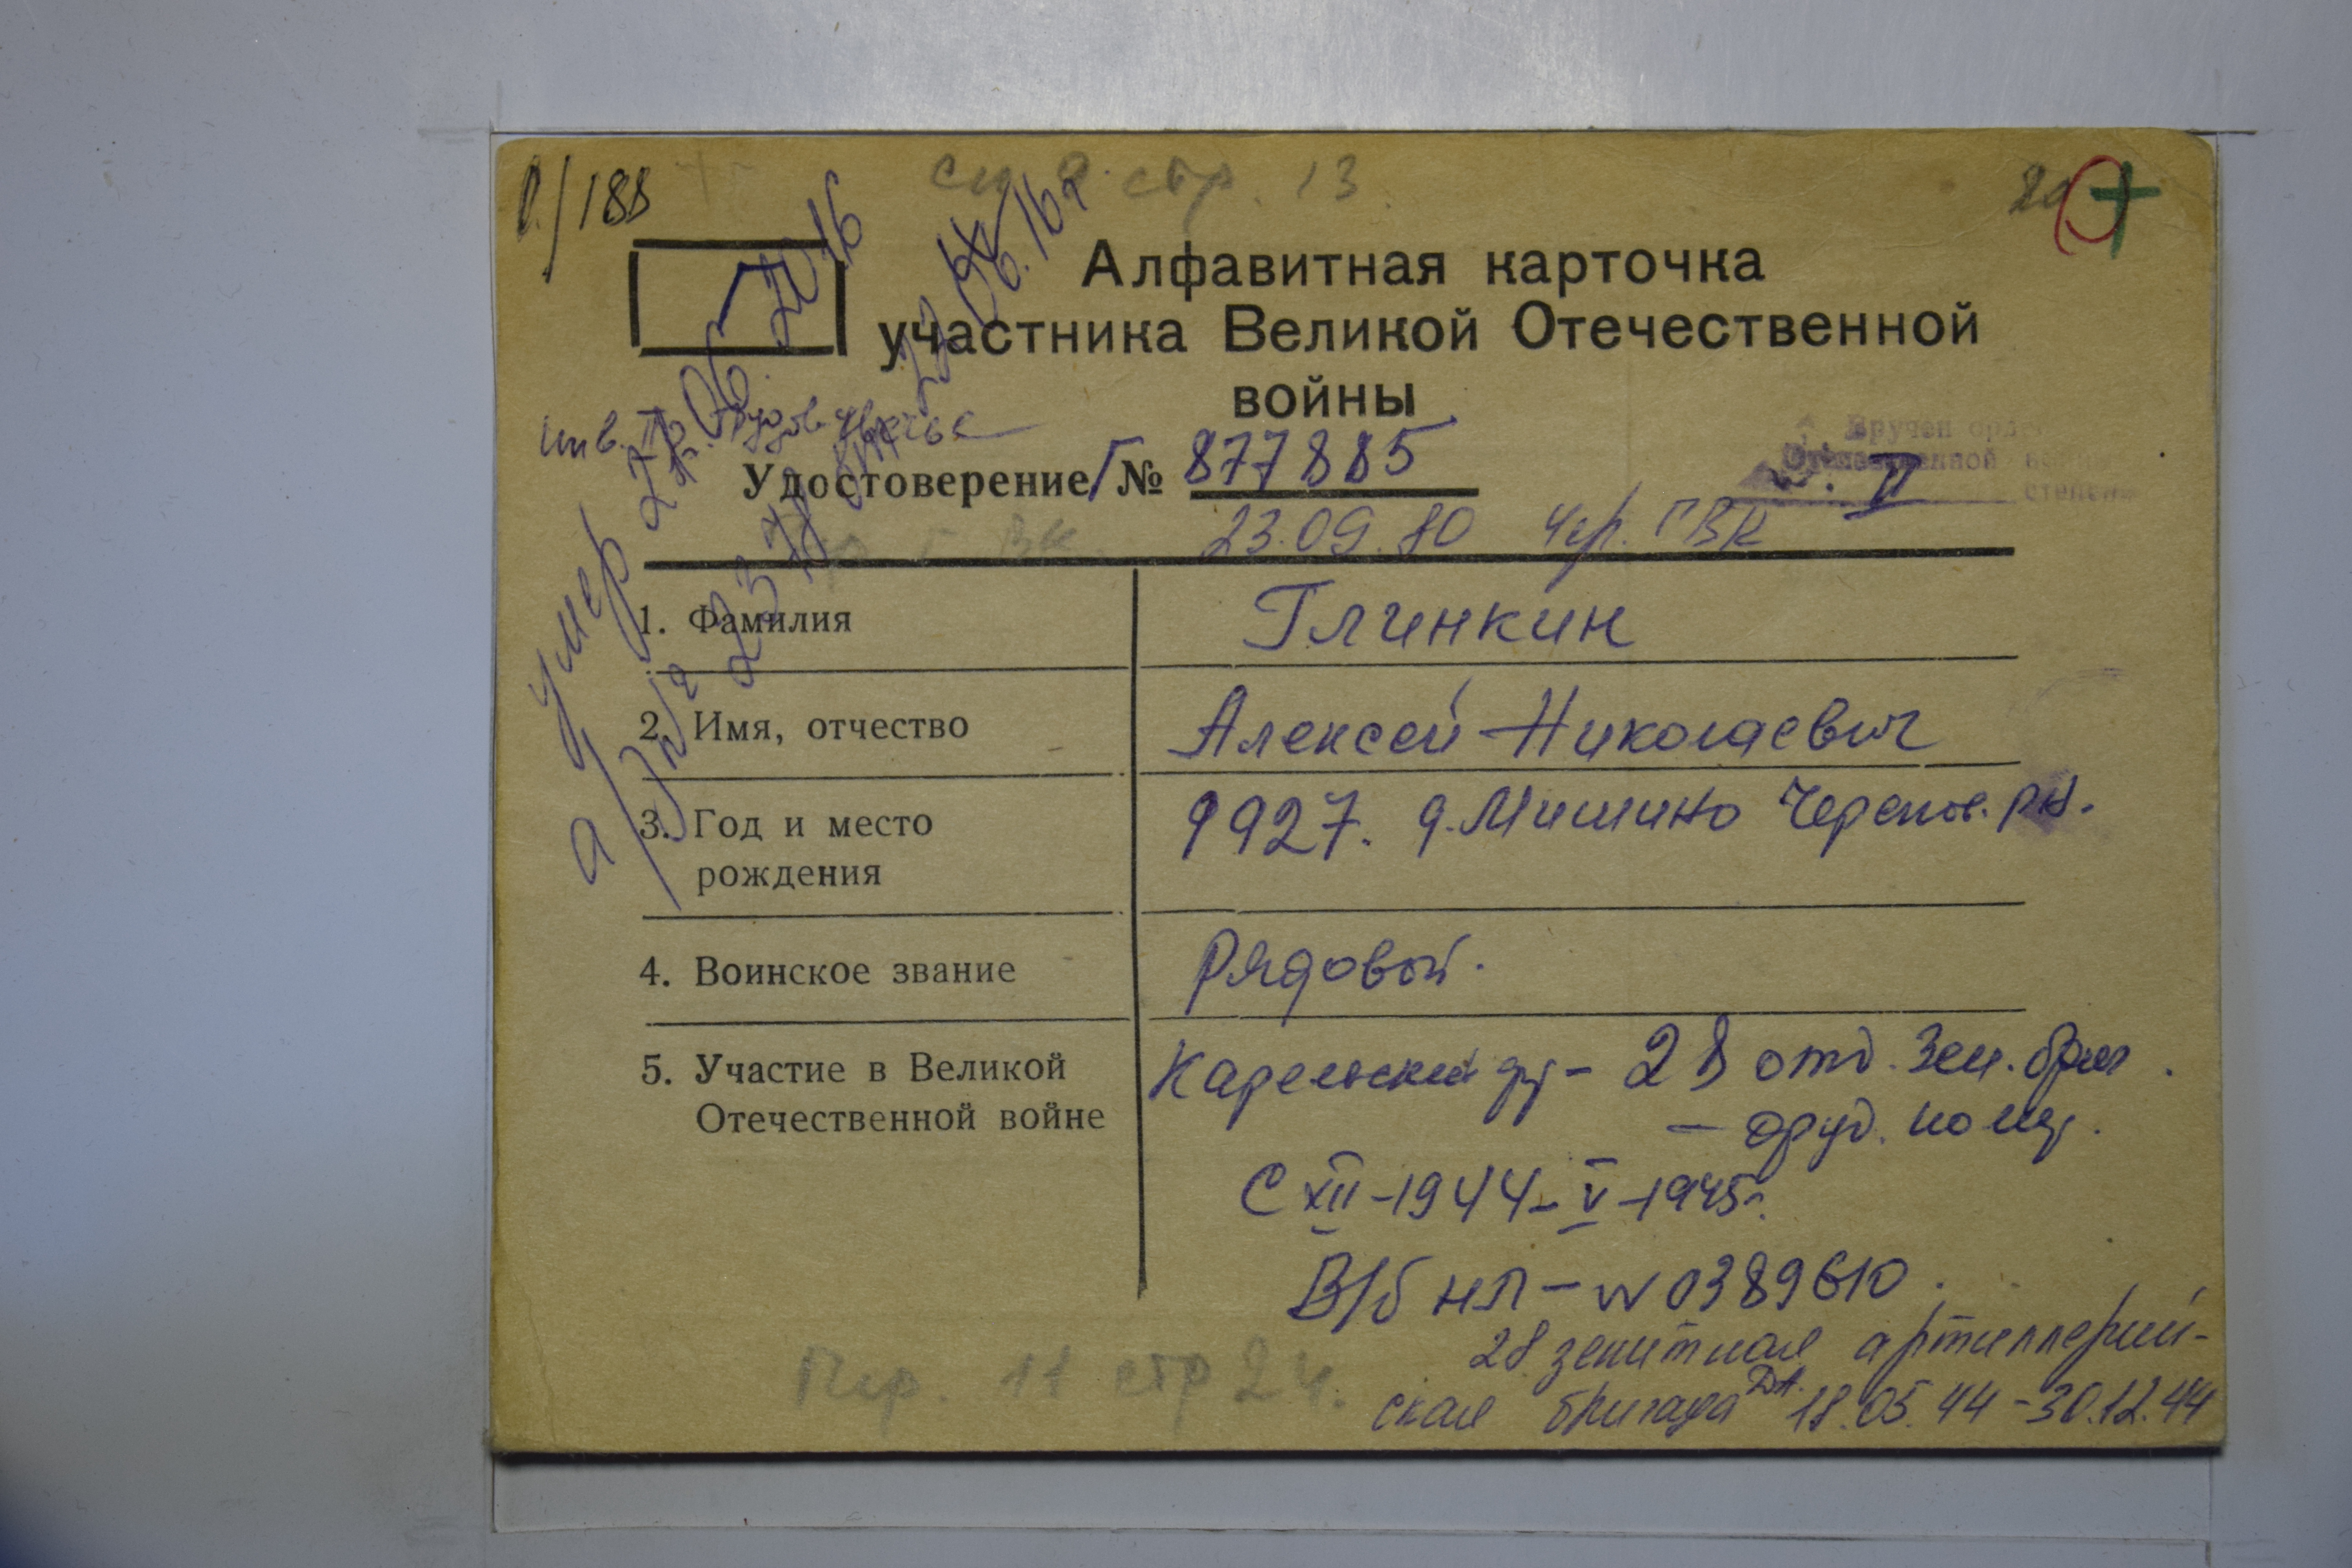 0/188
стр. 13
Алфавитная карточка
участника Великой Отечественной
войны
умер 27.06.2016
инв. II гр. трудов. увечье
Удостоверение Г № 877885
Вручен орден
Отечественной войны
II степени
23.09.80 Чер. ГВК
1. Фамилия Глинкин
2. Имя, отчество Алексей Николаевич
3. Год и место рождения 1927. д. Мишино Черепов. р-н.
4. Воинское звание Рядовой.
5. Участие в Великой Отечественной войне Карельский фр - 28 отд. зен. бриг.
- оруд. номер.
С XII-1944 - V-1945г.
В/б НЛ - № 0389610.
28 зенитная артиллерий-
ская бригада ДА. 18.05.44 - 30.12.44
Пер. 11 стр 24.